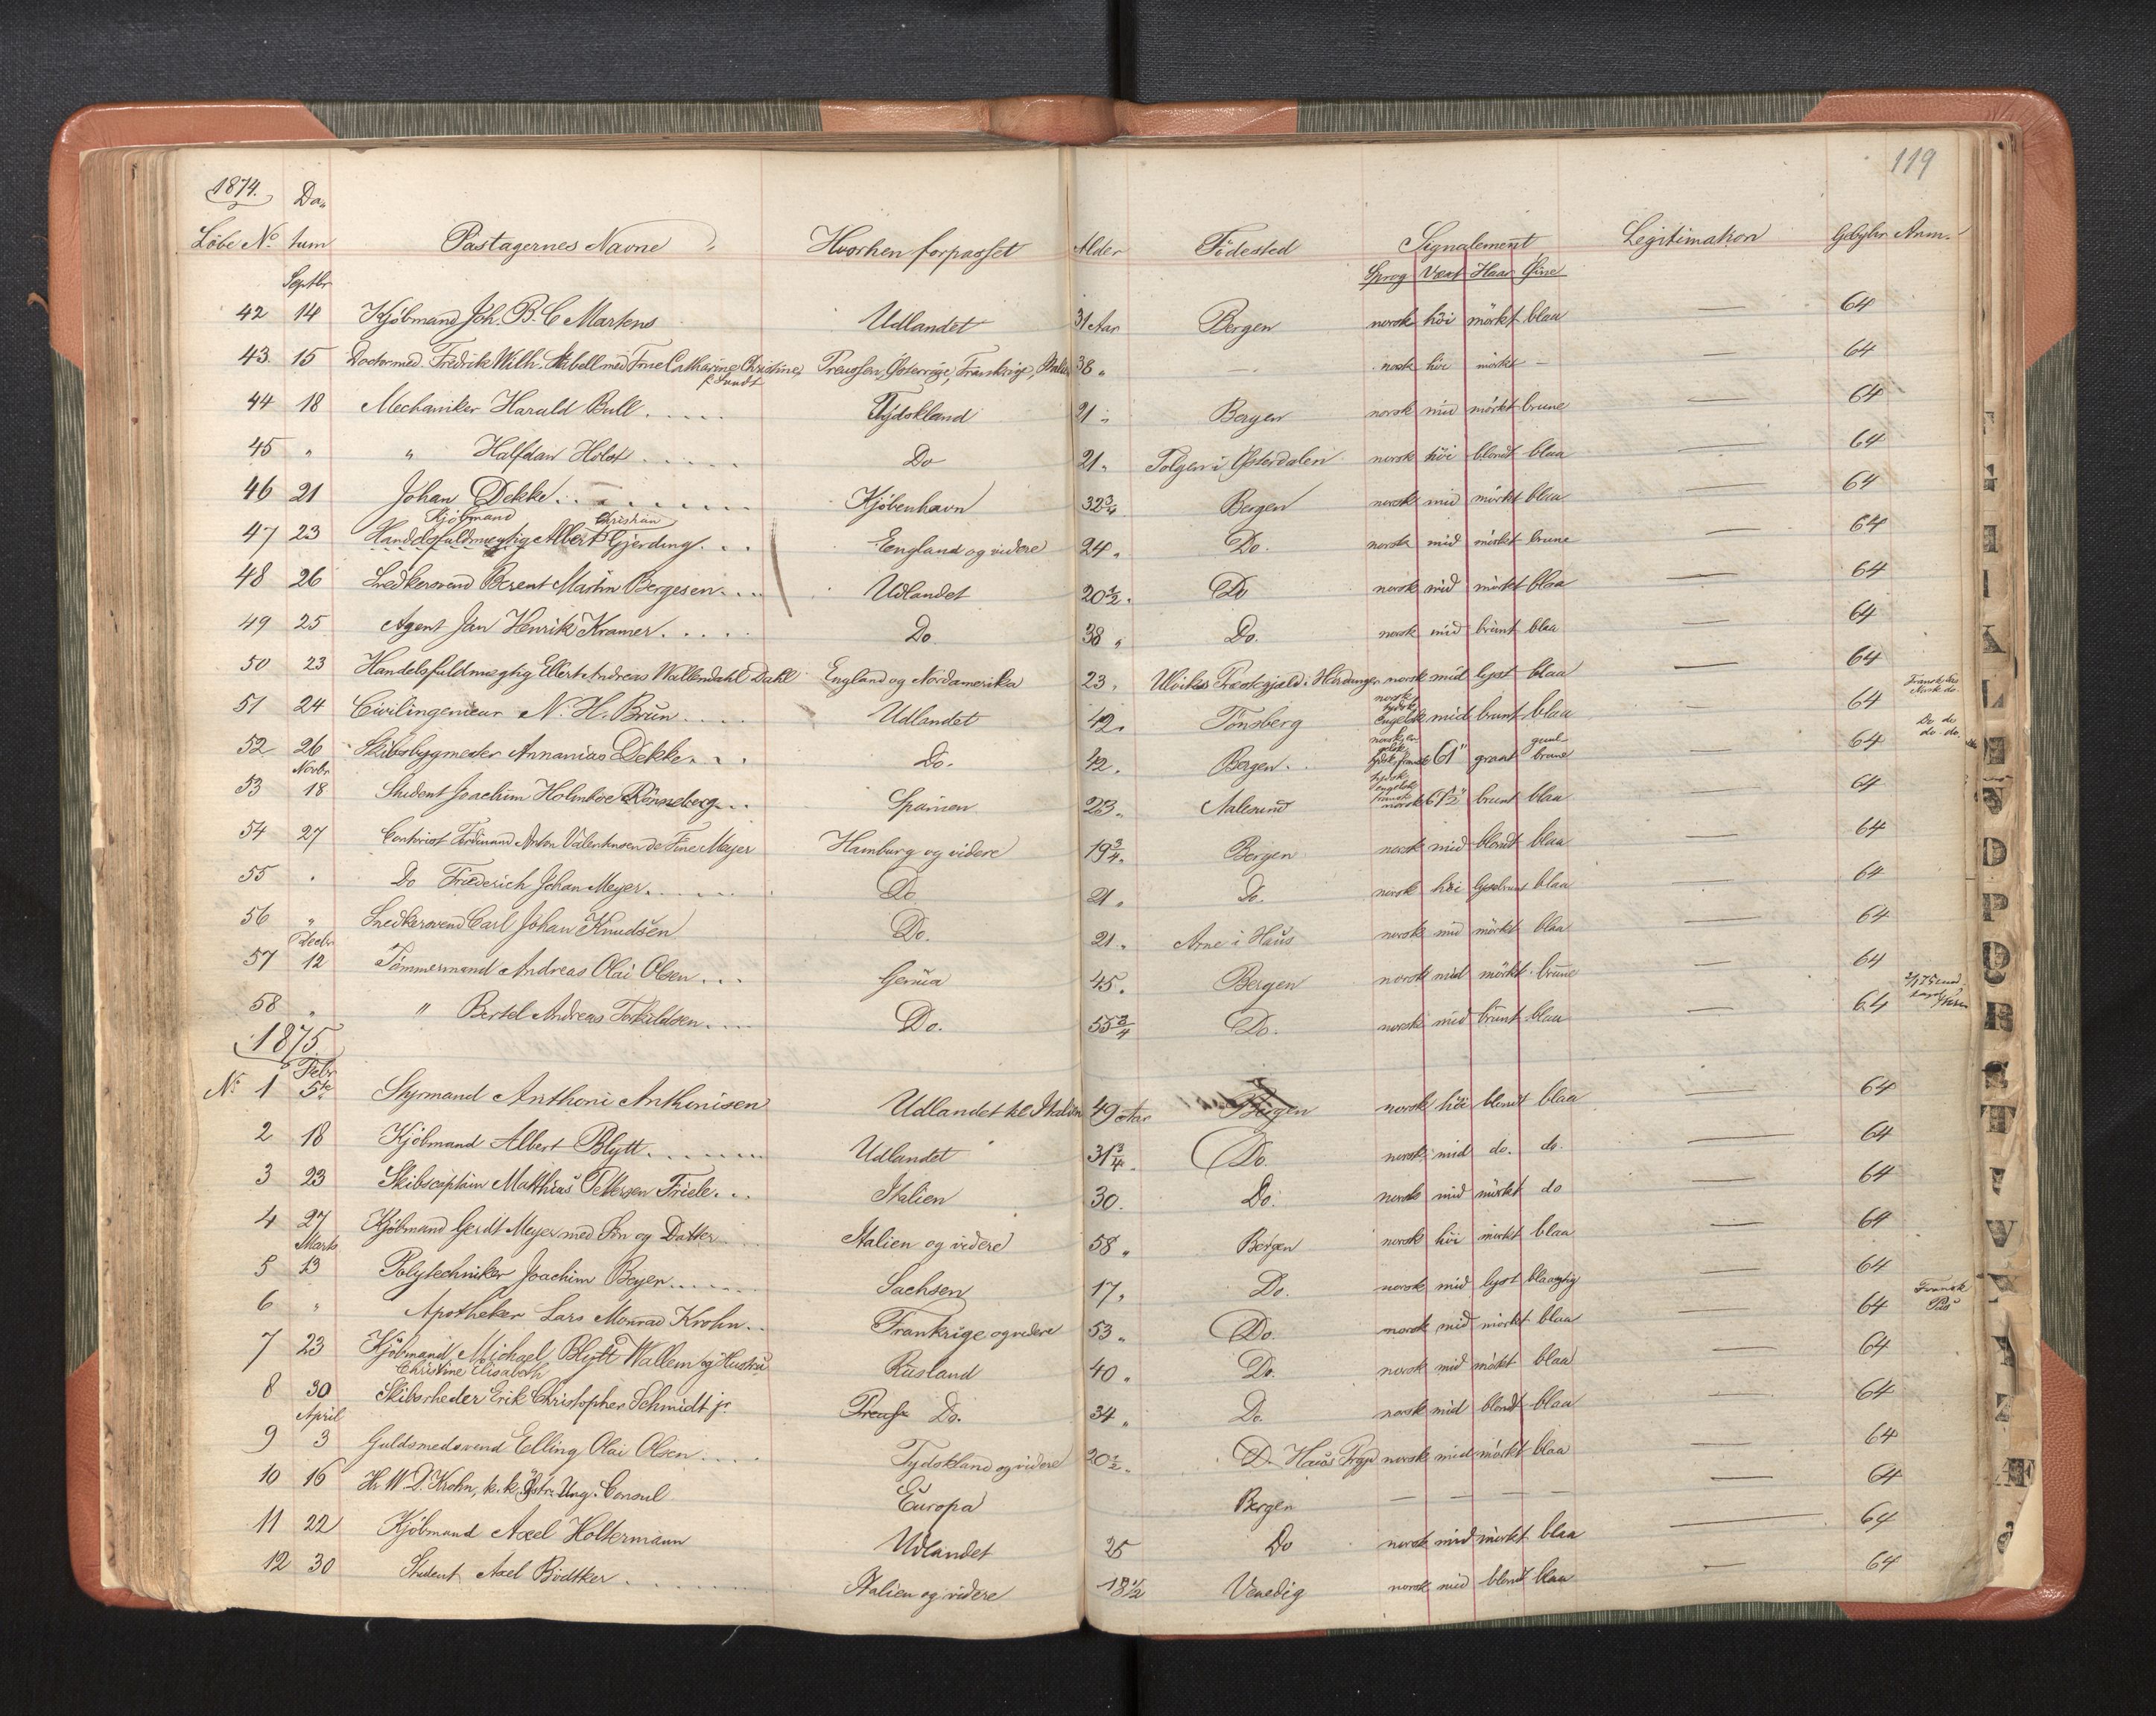 119
1874. Da-
Löbe No. tum Passagernes Navne Hvorhen forpasset Alder Födested Signalement Legitimation Gebyhr Anm.
Septbr Sprog Væxt Haar Öine
42 14 Kjöbmand Joh. B. C Martens Udlandet 31 Aar Bergen norsk höi mörkt blaa — 64
43. 15 Doctor med. Fredrik Wilh. med Frue Catharine Christine, Preussen, Österrige, Frankrige, Italien 38 " — norsk höi mörkt — — 64
f. Sundt
44 18 Mechaniker Harald Bull Tydskland 21 " Bergen norsk mid mörkt brune — 64
45 " " Halfdan Holst Do 21 " Tolgen i Österdalen norsk höi blondt blaa — 64
46 21 Johan Dekke Kjöbenhavn 32 3/4 Bergen norsk mid mörkt blaa — 64
Kjöbmand Christian
47 23 Handelsfuldmægtig Albert Gjerding England og videre 24 " Do. norsk mid mörkt brune — 64
48 26 Snedkersvend Berent Martin Bergesen Udlandet 20 1/2 Do norsk mid mörkt blaa — 64
49 25 Agent Jan Henrik Kramer Do 38 " Do. norsk mid brunt blaa — 64
50 23 Handelsfuldmægtig Ellert Andreas Wallendahl Dahl England og Nordamerika 23 " Ulviks Præstgjæld i Hardanger norsk mid lyst blaa — 64
norsk tydsk Fransk
51 24 Civilingenieur N. H. Brun Udlandet 42 " Tönsberg engelsk mid brunt blaa — 64 Norsk do.
norsk, en- gelsk graal Do do
52 26 Skibsbygmester Annanias Dekke Do. 42 " Bergen tydsk, fransk 61" graat brune 64 do. do.
Novbr tydsk engelsk fransk
53 18 Student Joachim Holmboe Rönneberg Spanien 23 " Aalesund norsk 67 1/2" brunt blaa — 64
54 27 Contorist Ferdinand Anton Valentinsen de Fine Meyer Hamburg og videre 19 3/4 " Bergen norsk mid blondt blaa — 64
55 " Do Frederich Johan Meyer Do 21 " Do. norsk höi lysebrunt blaa — 64
56 " Snedkersvend Carl Johan Knudsen Do. 21 " Arne i Haus norsk mid mörkt blaa — 64
Decbr
57 12 Tömmermand Andreas Olai Olsen Genua 45 " Bergen norsk mid mörkt brune — 64
58 " " Bertel Andreas Torkildsen Do. 55 3/4 Do. norsk mid brunt blaa — 64
1875
Febr
No 1 5te Styrmand Anthoni Anthonisen Udlandet til Italien 49 Aar Bergen norsk höi blondt blaa — 64
2 18 Kjöbmand Albert Blytt Udlandet 31 3/4 Do. norsk mid do. do. — 64
3 23 Skibscaptain Matthias Pettersen Friele Italien 30. Do. norsk mid mörkt do — 64
4 27 Kjöbmand Gerdt Meyer med Sön og Datter Italien og videre 58 " Bergen norsk höi mörkt blaa — 64
Marts
5 13 Polytechniker Joachim Beyer Sachsen 17 " Do. norsk mid lyst blaaagtig — 64
6 " Apotheker Lars Monrad Krohn Frankrige og videre 53 " Do. norsk mid mörkt blaa — 64 Fransk Pas
7 23 Kjöbmand Michael Blytt Wallem og Hustru Rusland 40 " Do. norsk mid mörkt blaa — 64
Christine Elisabeth
8 30 Skibsrheder Erik Christopher Schmidt jr. Preuss Do. 34 " Do. norsk mid blondt blaa — 64
April
9 3 Guldsmedsvend Elling Olai Olsen Tydskland og videre 20 1/2 " D. Haus norsk mid mörkt blaa — 64
10 16 Hr. W. D. Krohn, k. k. Östr. Ung. Consul Europa Bergen — — — — — 64
11 22 Kjöbmand Axel Holtermann Udlandet 25 Do norsk mid mörkt blaa — 64
12 30 Student Axel Bödtker Italien og videre 18 1/2 Venedig norsk mid blondt blaa — 64